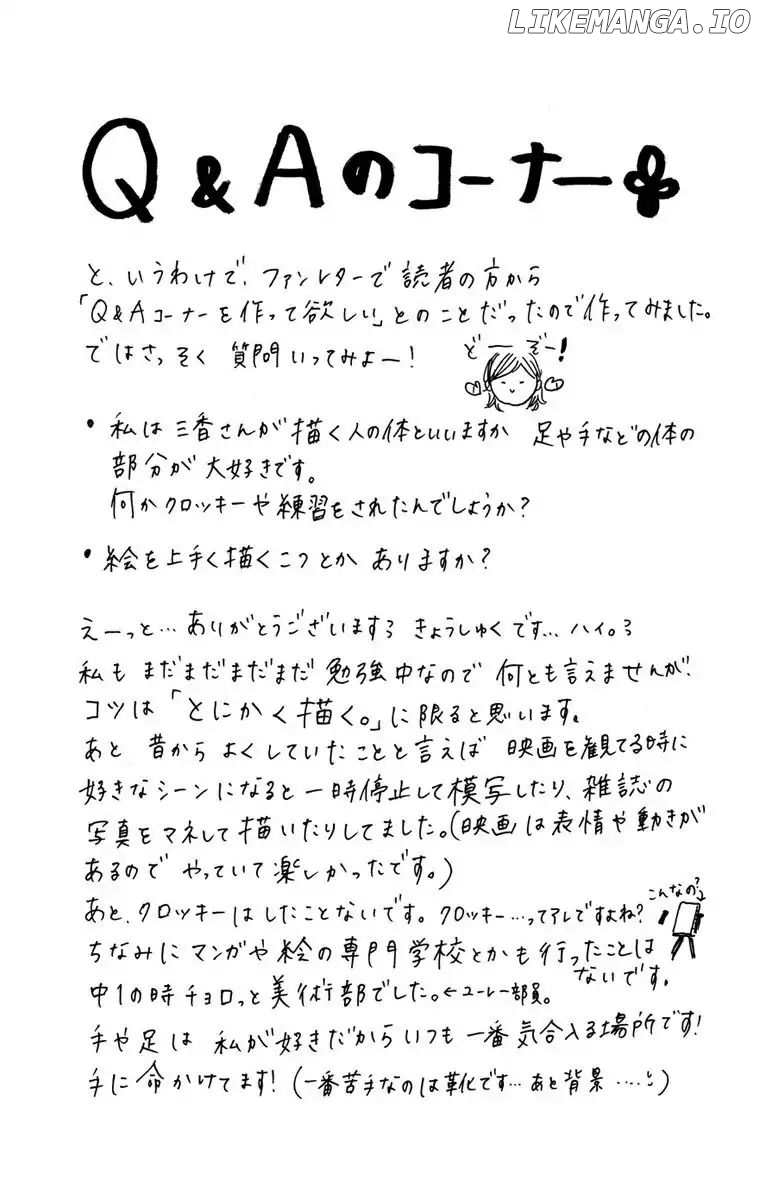 LIKEMANGA.IO
Q&Aのコーナー
と、いうわけで、ファンレターで読者の方から
「Q&Aコーナーを作って欲しい」とのことだったので作ってみました。
ではさっそく 質問いってみよー!
どーぞー!
・私は三香さんが描く人の体といいますか 足や手などの体の
部分が大好きです。
何かクロッキーや練習をされたんでしょうか?
・絵を上手く描くこつとか ありますか?
えーっと…ありがとうございますろ きょうしゅくです…ハイ。ろ
私も まだまだまだまだ 勉強中なので 何とも言えませんが、
コツは「とにかく描く。」に限ると思います。
あと 昔から よくしていたことと言えば 映画を観てる時に
好きなシーンになると一時停止して模写したり、雑誌の
写真をマネして描いたりしてました。(映画は表情や動きが
あるので やっていて楽しかったです。)
こんなの?
あと、クロッキーはしたことないです。クロッキー…ってアレですよね?
ちなみにマンガや絵の専門学校とかも行ったことは
ないです。
中1の時チョロっと美術部でした。←ユーレー部員。
手や足は 私が好きだからいつも 一番気合入る場所です!
手に命かけてます!(一番苦手なのは革化です…あと背景……)